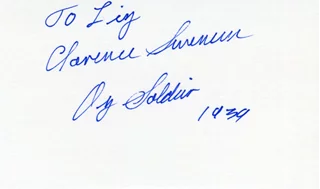 To Liz
Clarence Swensen
Oz Soldier
1939